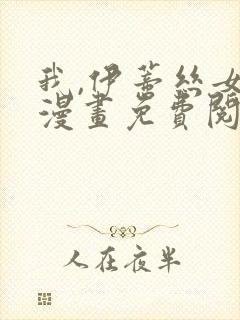 我,伊蒂丝女
漫畫免費閱
人在夜半